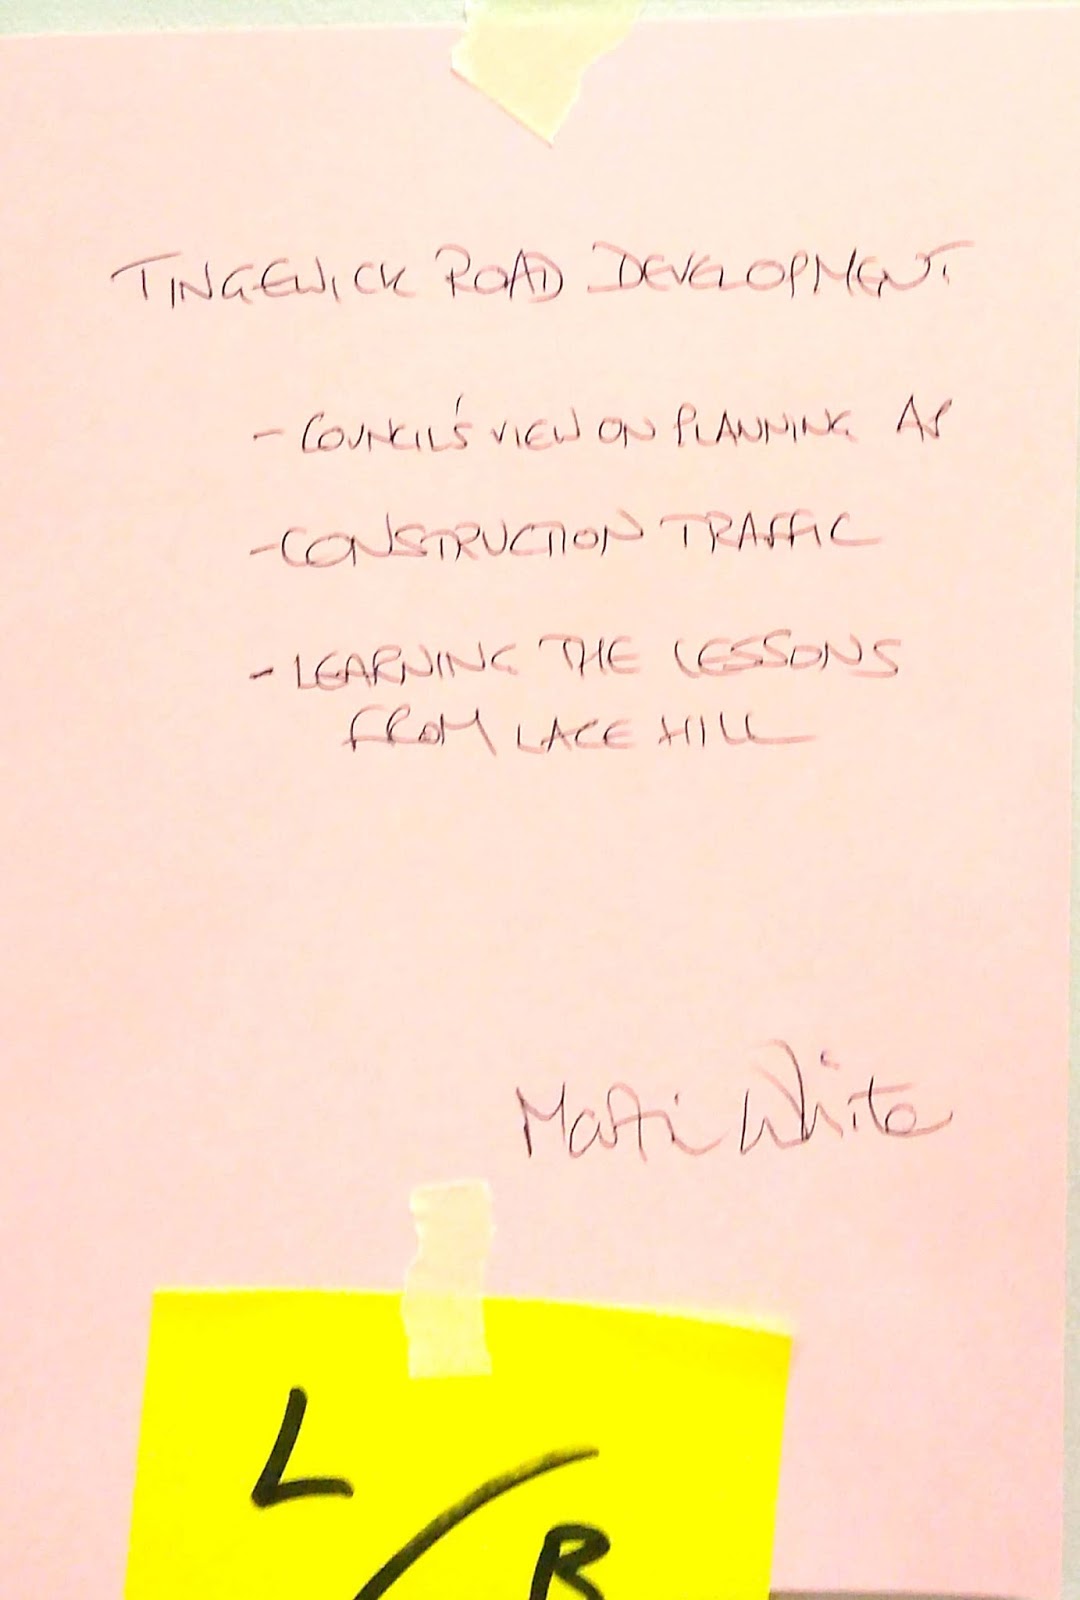 TINGEWICK ROAD DEVELOPMENT
- COUNCIL'S VIEW ON PLANNING
- CONSTRUCTION TRAFFIC
- LEARNING THE LESSONS
FROM LACE HILL
Martin White
L / B